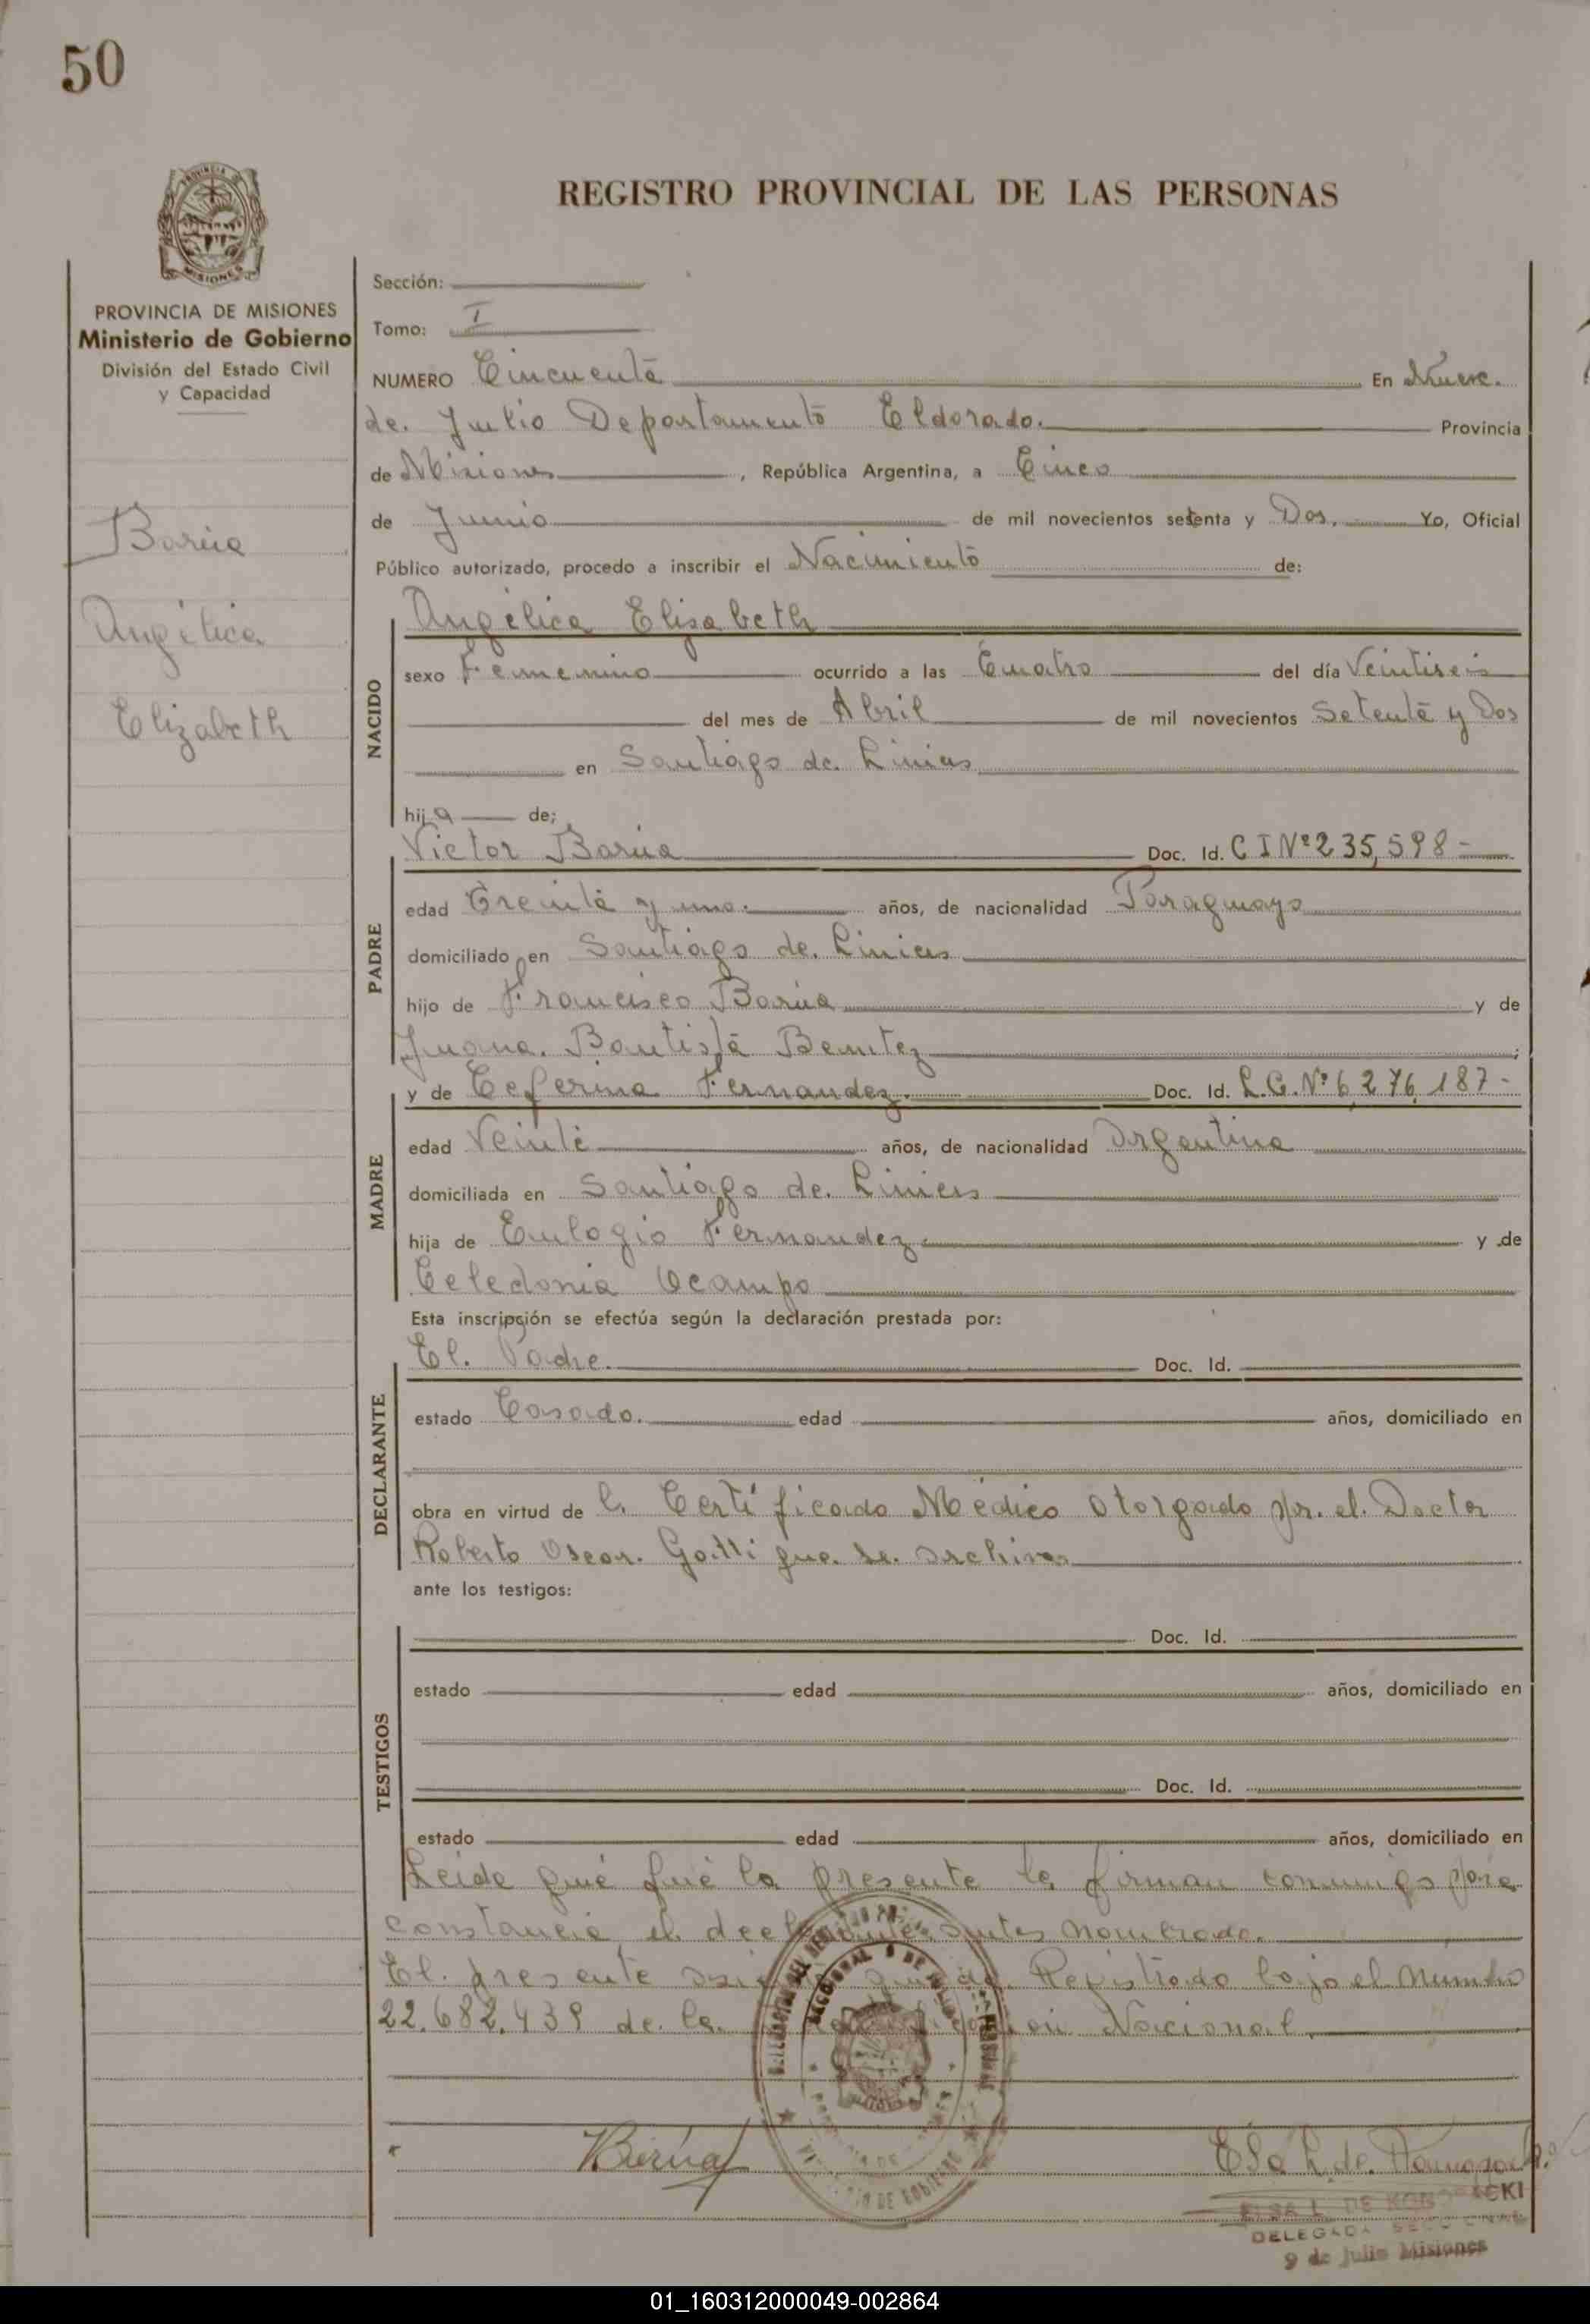 50
REGISTRO PROVINCIAL DE LAS PERSONAS
PROVINCIA DE MISIONES
Ministerio de Gobierno
División del Estado Civil
y Capacidad
Barúa
Angélica
Elizabeth
Sección:
Tomo: I
NUMERO Cincuenta En Nueve.
de. Julio Departamento Eldorado. Provincia
de Misiones, República Argentina, a Cinco
de Junio de mil novecientos setenta y Dos. Yo, Oficial
Público autorizado, procedo a inscribir el Nacimiento de:
NACIDO
Angélica Elisabeth
sexo Femenino ocurrido a las Cuatro del día Veintiseis
del mes de Abril de mil novecientos Setenta y Dos
en Santiago de. Liniers
hija de;
PADRE
Victor Barúa Doc. Id. C I Nº 235,598-
edad Treinta y uno. años, de nacionalidad Paraguayo
domiciliado en Santiago de. Liniers
hijo de Francisco Barúa y de
Juana. Bautista Benitez;
MADRE
y de Ceferina Fernandez. Doc. Id. L.C. Nº 6,276,187-
edad Veinte años, de nacionalidad Argentina
domiciliada en Santiago de. Liniers
hija de Eulogio Fernandez. y de
Celedonia Ocampo
Esta inscripción se efectúa según la declaración prestada por:
DECLARANTE
El. Padre. Doc. Id.
estado Casado. edad años, domiciliado en
obra en virtud de Certificado Médico otorgado por. el. Doctor
Roberto Oscar. que. se. archiva
ante los testigos:
TESTIGOS
Doc. Id.
estado edad años, domiciliado en
Doc. Id.
estado edad años, domiciliado en
Leida qué fué la presente la firman conmigo para
constancia el declarante antes nombrado.
El. presente queda. Registrado bajo el Numero
22.682.439 de. la. Nacional.
Barúa
Elsa L. de.
ELSA L. DE
DELEGADA SECCIONAL
9 de Julio Misiones
01_160312000049-002864